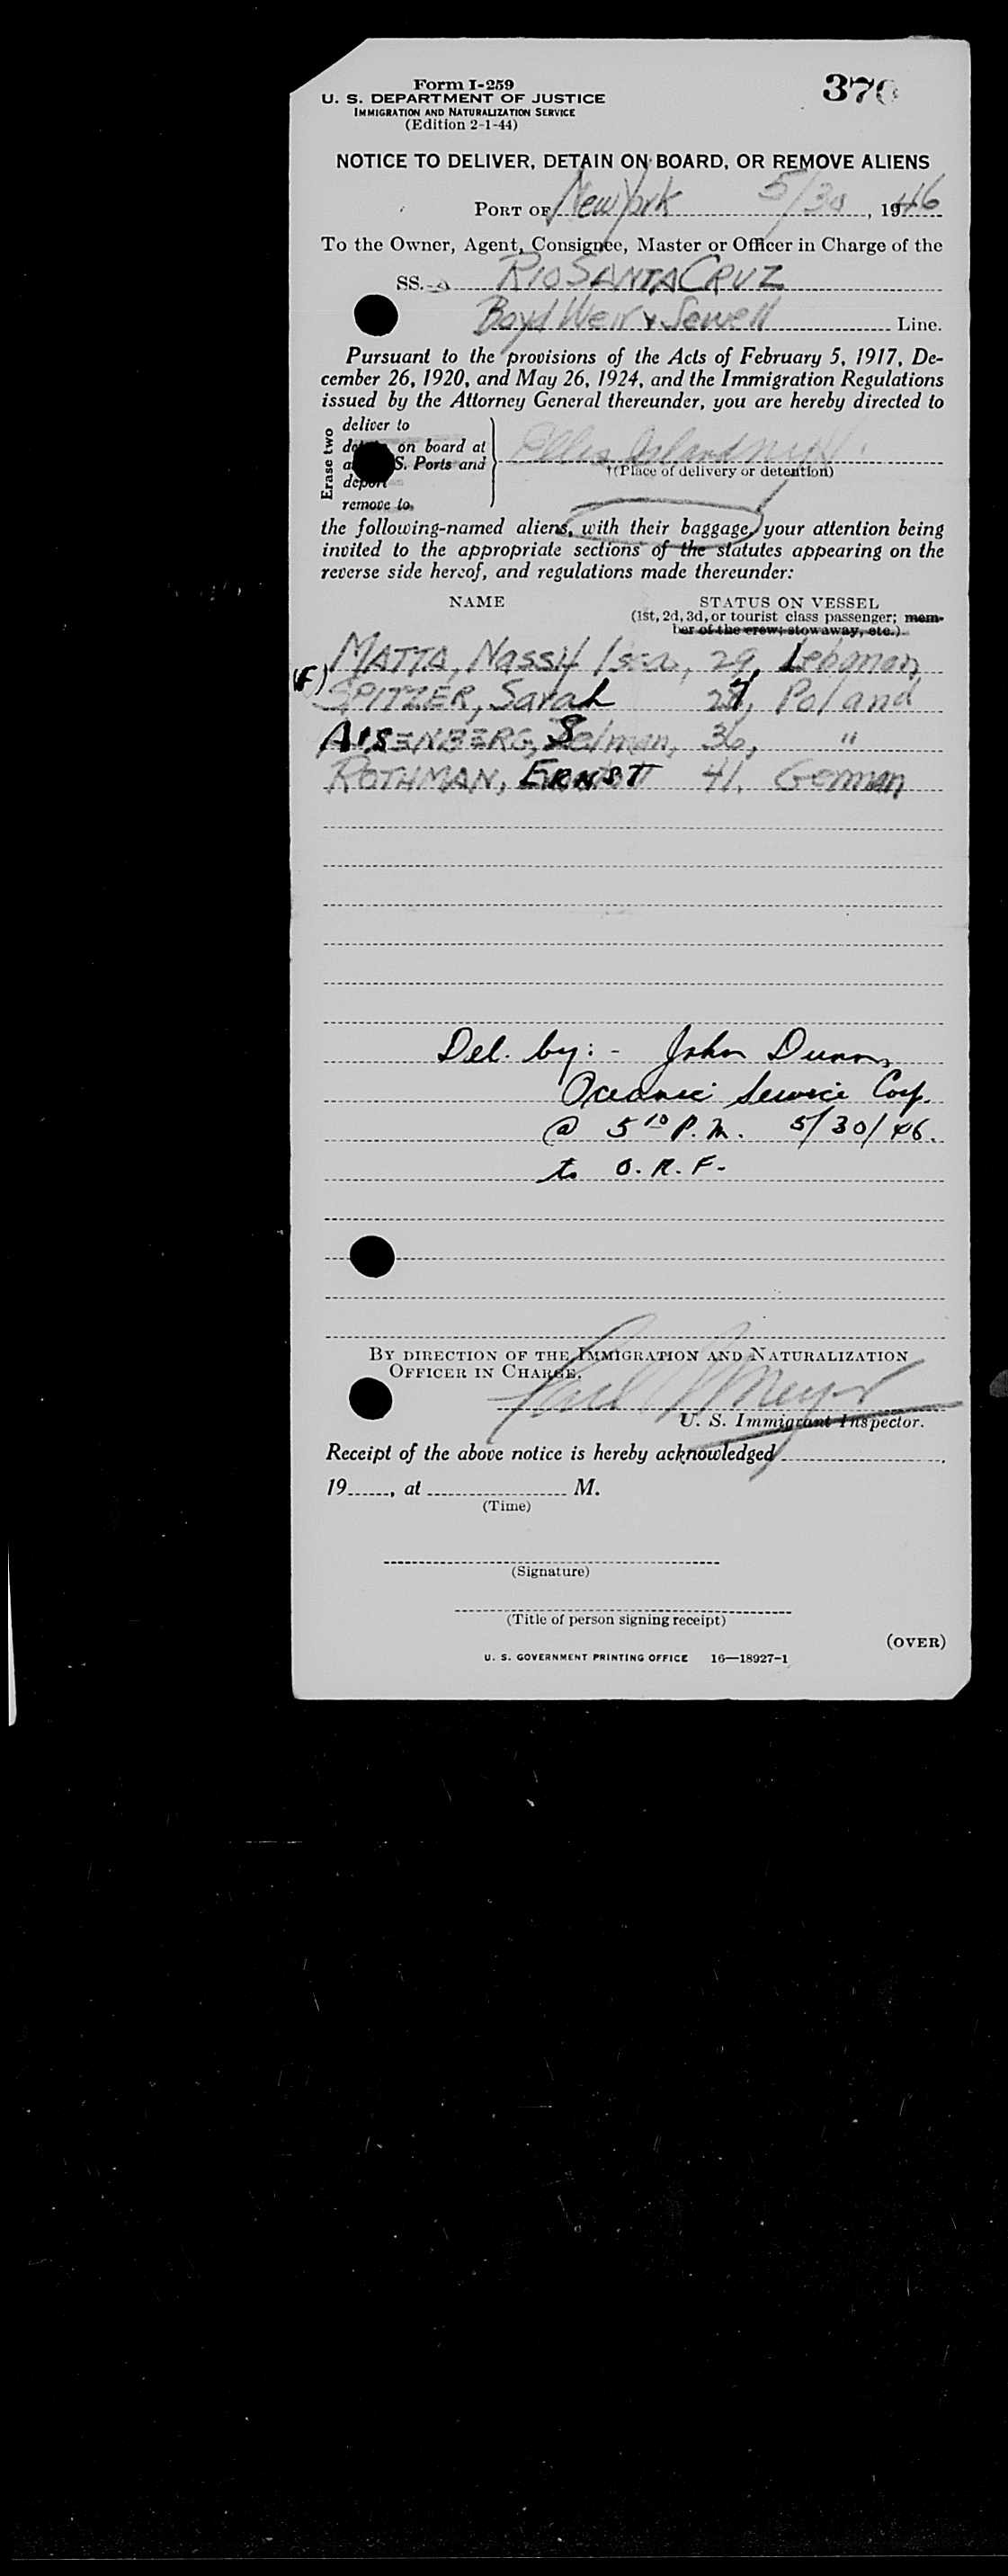 Form I-259
U. S. DEPARTMENT OF JUSTICE
IMMIGRATION AND NATURALIZATION SERVICE
(Edition 2-1-44)
370
NOTICE TO DELIVER, DETAIN ON BOARD, OR REMOVE ALIENS
PORT OF New York 5/30, 1946
To the Owner, Agent, Consignee, Master or Officer in Charge of the
SS. RIO SANTA CRUZ
Boyd Weir & Sewell Line.
Pursuant to the provisions of the Acts of February 5, 1917, De-
cember 26, 1920, and May 26, 1924, and the Immigration Regulations
issued by the Attorney General thereunder, you are hereby directed to
Erase two
deliver to
on board at
S. Ports and
deport
remove to
Ellis Island N.Y.
†(Place of delivery or detention)
the following-named aliens, with their baggage, your attention being
invited to the appropriate sections of the statutes appearing on the
reverse side hereof, and regulations made thereunder:
NAME STATUS ON VESSEL
(1st, 2d, 3d, or tourist class passenger; mem-
ber of the crew; stowaway, etc.)
MATTA, Nassif Issa, 29, Lebanon
(F) SPITZER, Sarah Poland
AISENBERG, Selman, 36, "
ROTHMAN, ERNST 41, German
Del. by: - John Dunn
Oceanic Service Corp.
@ 5 10 P.M. 5/30/46.
to O. R. F.
BY DIRECTION OF THE IMMIGRATION AND NATURALIZATION
OFFICER IN CHARGE.
Meyer
U. S. Immigrant Inspector.
Receipt of the above notice is hereby acknowledged
19......, at M.
(Time)
(Signature)
(Title of person signing receipt)
(OVER)
U. S. GOVERNMENT PRINTING OFFICE 16—18927-1